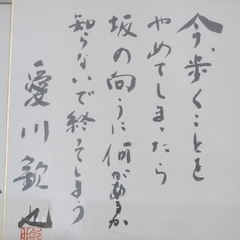 今、歩くことを
やめてしまったら
坂の向うに何があるか
知らないで終ってしまう
愛川欽也